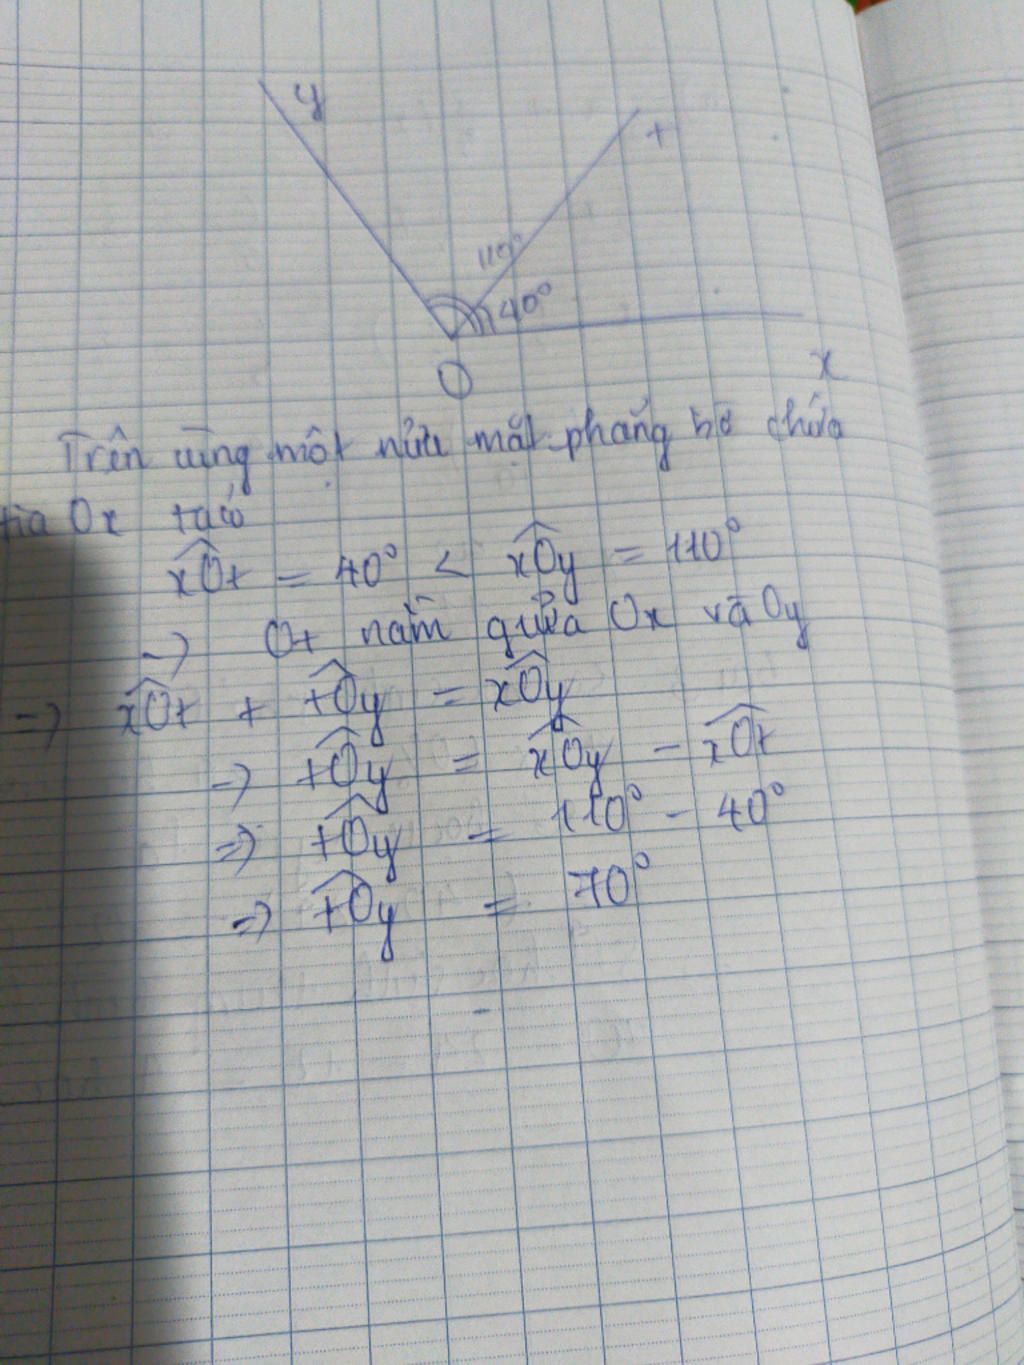 y
t
110°
40°
O
x
Trên cùng một nửa mặt phẳng bờ chứa
tia Ox ta có
xOt = 40° < xOy = 110°
=> Ot nằm giữa Ox và Oy
=> xOt + tOy = xOy
=> tOy = xOy - xOt
=> tOy = 110° - 40°
=> tOy = 70°